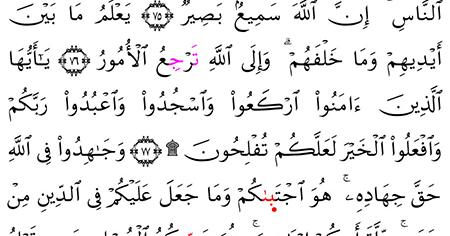 ٱلنَّاسِ ۗ إِنَّ ٱللَّهَ سَمِيعٌۢ بَصِيرٌ ۝٧٥ يَعْلَمُ مَا بَيْنَ
أَيْدِيهِمْ وَمَا خَلْفَهُمْ ۗ وَإِلَى ٱللَّهِ تَرْجِعُ ٱلْأُمُورُ ۝٧٦ يَٰٓأَيُّهَا
ٱلَّذِينَ ءَامَنُوا۟ ٱرْكَعُوا۟ وَٱسْجُدُوا۟ وَٱعْبُدُوا۟ رَبَّكُمْ
وَٱفْعَلُوا۟ ٱلْخَيْرَ لَعَلَّكُمْ تُفْلِحُونَ ۩ ۝٧٧ وَجَٰهِدُوا۟ فِى ٱللَّهِ
حَقَّ جِهَادِهِۦ ۚ هُوَ ٱجْتَبىٰكُمْ وَمَا جَعَلَ عَلَيْكُمْ فِى ٱلدِّينِ مِنْ